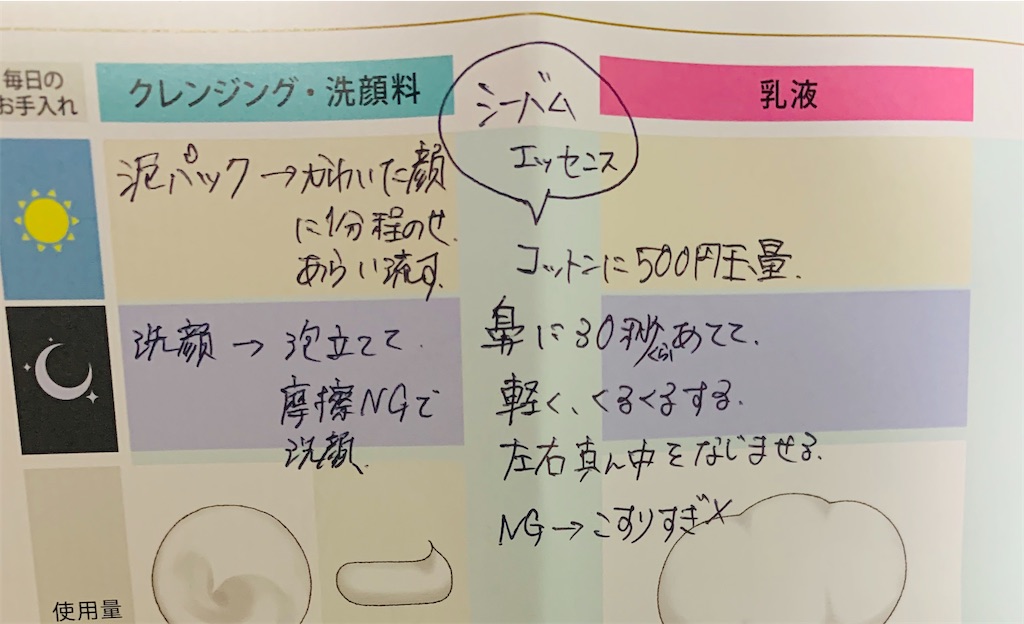 毎日の
お手入れ
クレンジング・洗顔料
シーバム
エッセンス
乳液
泥パック→かわいた顔
に1分程のせ.
あらい流す.
コットンに500円玉量.
洗顔→泡立てて.
摩擦NGで
洗顔.
鼻に30秒くらいあてて.
軽く、くるくるする.
左右真ん中をなじませる.
NG→こすりすぎ×
使用量